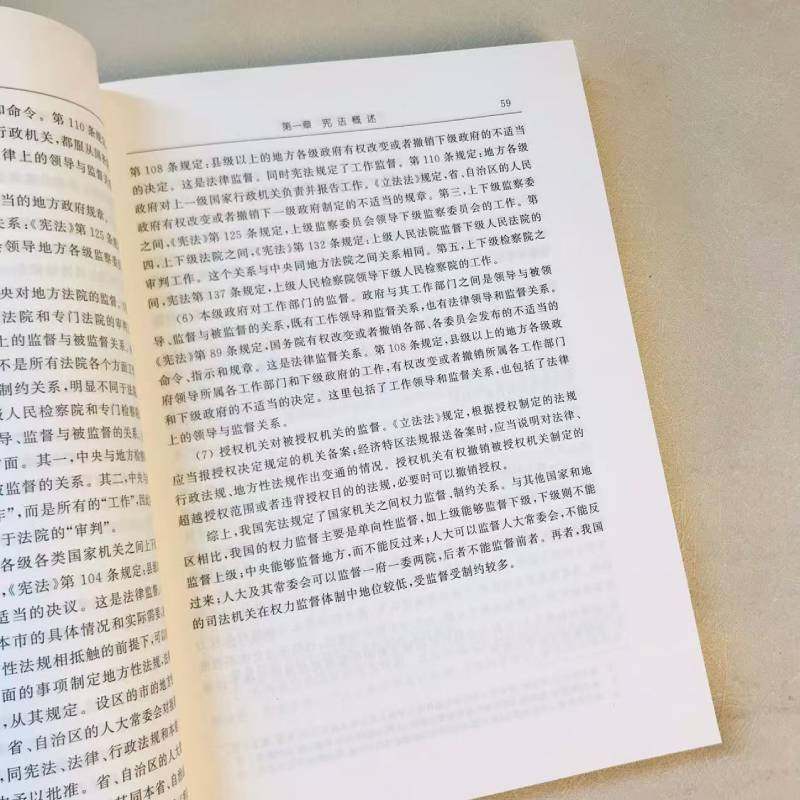 和命令。第 110 条规定
行政机关，都服从国务
律上的领导与监督关
当的地方政府规章。
关系：《宪法》第 125 条
会领导地方各级监察委
央对地方法院的监督。
法院和专门法院的审判
上的监督与被监督的关
不是所有法院各个方面工
制约关系，明显不同于法
级人民检察院和专门检察
导、监督与被监督的关系
面。其一，中央与地方检
被监督的关系。其二，中央与
作”，而是所有的“工作”，因此
于法院的“审判”。
各级各类国家机关之间上下
，《宪法》第 104 条规定：县级
适当的决议。这是法律监督
本市的具体情况和实际需要，
性法规相抵触的前提下，可以
面的事项制定地方性法规，法
，从其规定。设区的市的地方
省、自治区的人大常委会对报
，同宪法、法律、行政法规和本省
予以批准。省、自治区的人大
其同本省、自治
第一章 宪法概述
59
第 108 条规定：县级以上的地方各级政府有权改变或者撤销下级政府的不适当
的决定。这是法律监督。同时宪法规定了工作监督。第 110 条规定：地方各级
政府对上一级国家行政机关负责并报告工作。《立法法》规定，省、自治区的人民
政府有权改变或者撤销下一级政府制定的不适当的规章。第三，上下级监察委
之间，《宪法》第 125 条规定，上级监察委员会领导下级监察委员会的工作。第
四，上下级法院之间，《宪法》第 132 条规定：上级人民法院监督下级人民法院的
审判工作。这个关系与中央同地方法院之间关系相同。第五，上下级检察院之
间，宪法第 137 条规定，上级人民检察院领导下级人民检察院的工作。
（6）本级政府对工作部门的监督。政府与其工作部门之间是领导与被领
导、监督与被监督的关系，既有工作领导和监督关系，也有法律领导和监督关系。
《宪法》第 89 条规定，国务院有权改变或者撤销各部、各委员会发布的不适当的
命令、指示和规章。这是法律监督关系。第 108 条规定，县级以上的地方各级政
府领导所属各工作部门和下级政府的工作，有权改变或者撤销所属各工作部门
和下级政府的不适当的决定。这里包括了工作领导和监督关系，也包括了法律
上的领导与监督关系。
（7）授权机关对被授权机关的监督。《立法法》规定，根据授权制定的法规
应当报授权决定规定的机关备案；经济特区法规报送备案时，应当说明对法律、
行政法规、地方性法规作出变通的情况。授权机关有权撤销被授权机关制定的
超越授权范围或者违背授权目的的法规，必要时可以撤销授权。
综上，我国宪法规定了国家机关之间权力监督、制约关系。与其他国家和地
区相比，我国的权力监督主要是单向性监督，如上级能够监督下级，下级则不能
监督上级；中央能够监督地方，而不能反过来；人大可以监督人大常委会，不能反
过来；人大及其常委会可以监督一府一委两院，后者不能监督前者。再者，我国
的司法机关在权力监督体制中地位较低，受监督受制约较多。